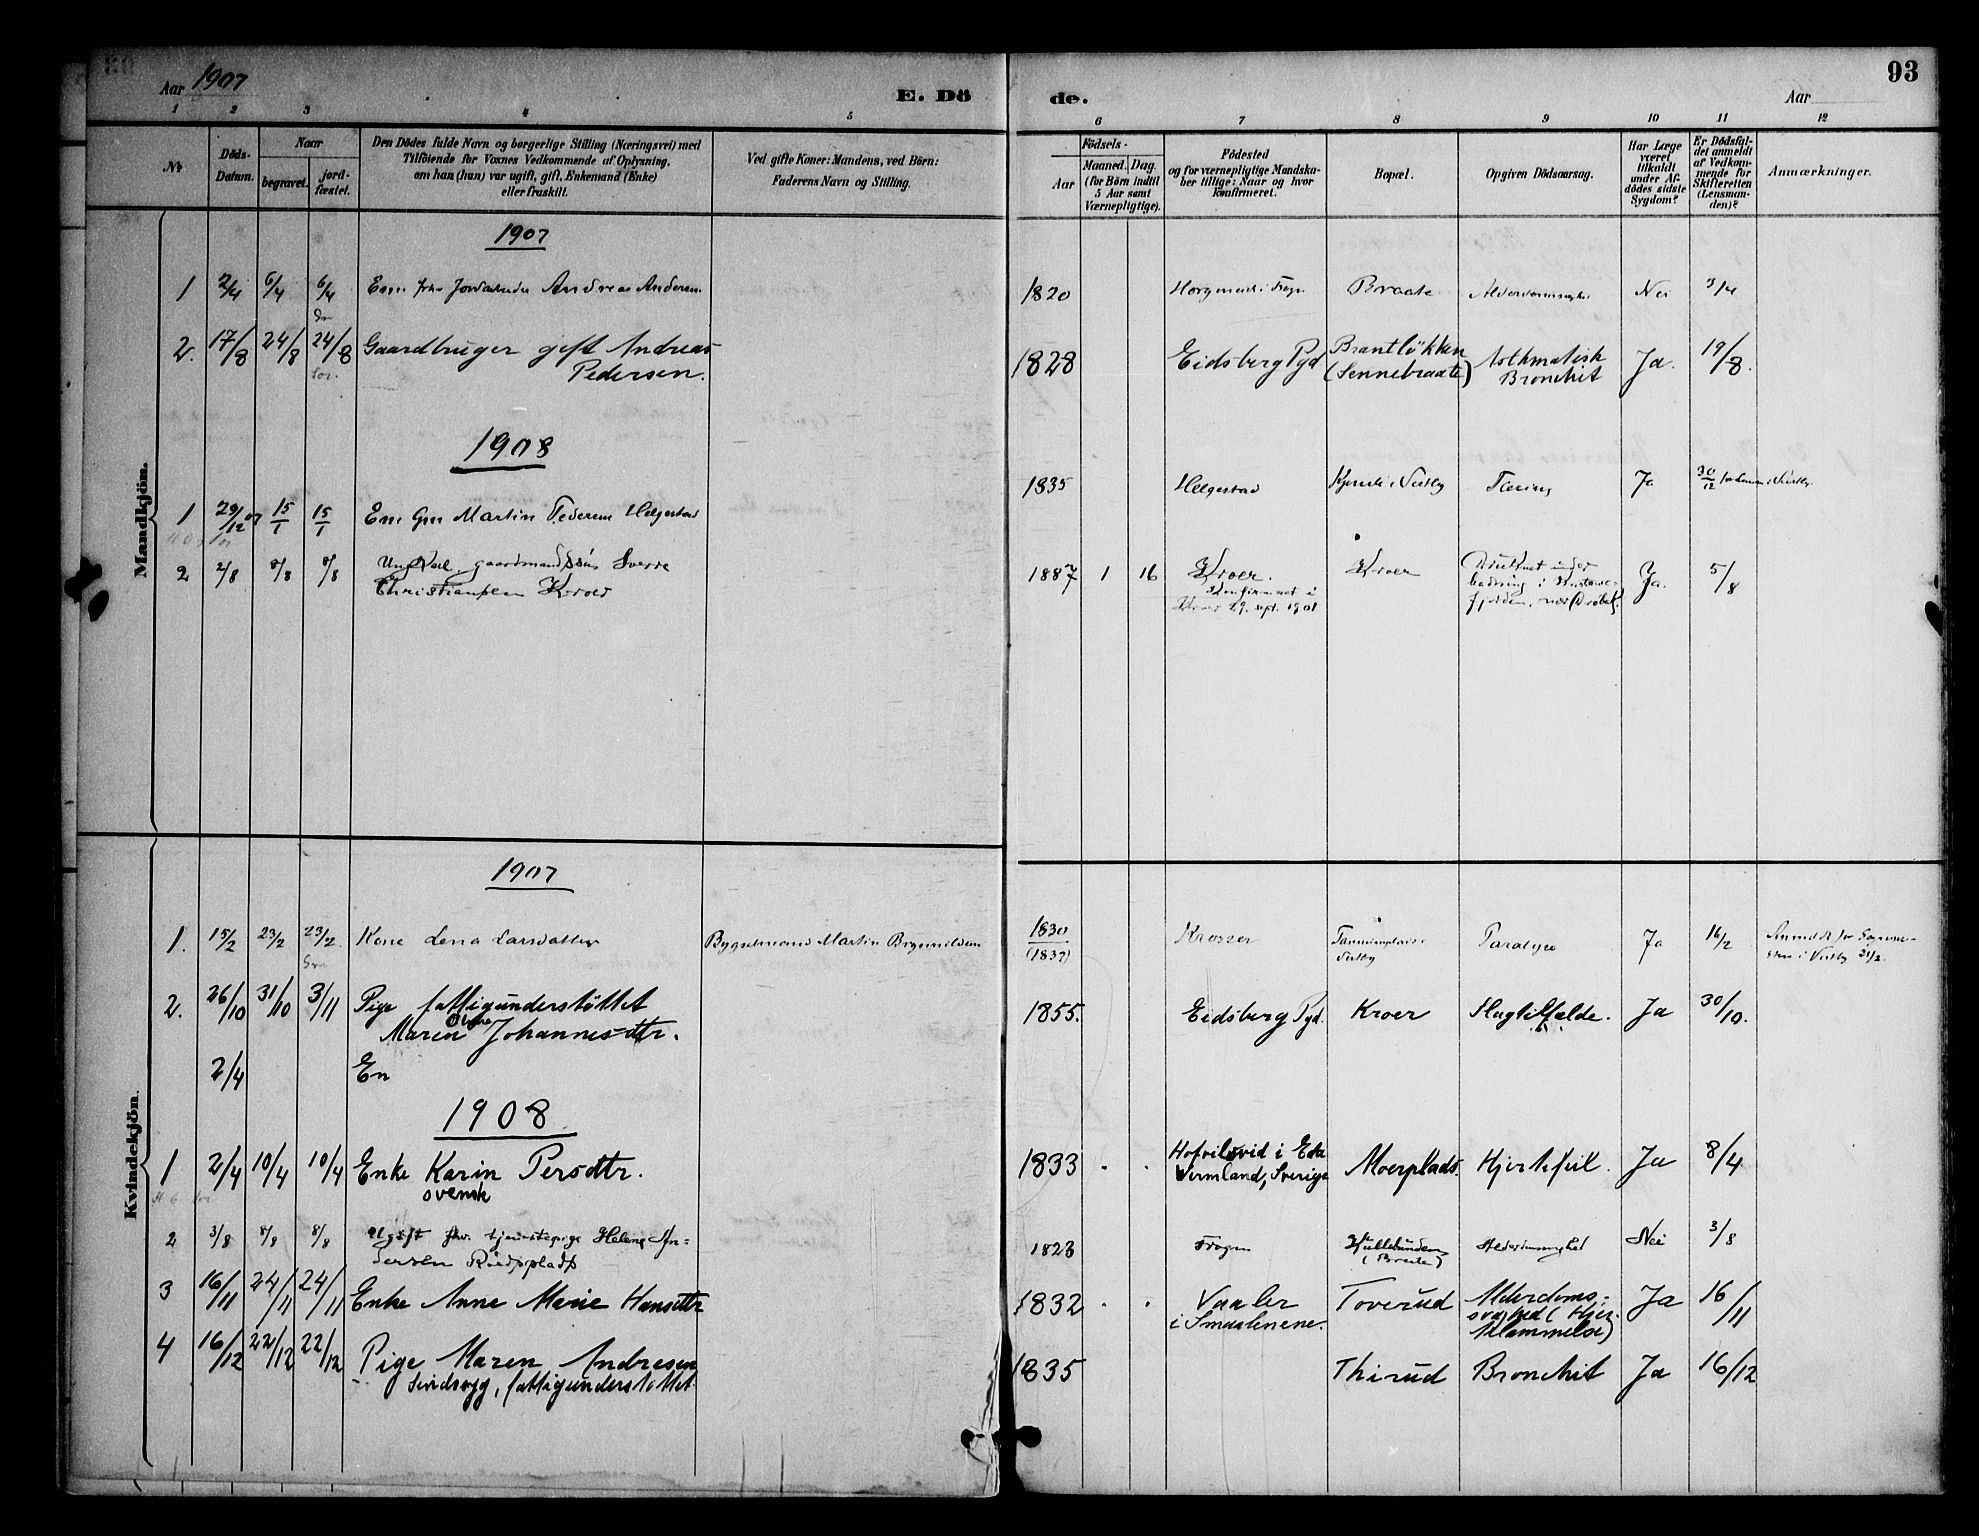 Aar 1907
E. Dö
de.
Aar
93
1 2 3 4 5 6 7 8 9 10 11 12
No
Döds-Datum.
Naar
begravet.
jordfæstet.
Den Dödes fulde Navn og borgerlige Stilling (Næringsvei) med
Tilföiende for Voxnes Vedkommende af Oplysning,
om han (hun) var ugift, gift, Enkemand (Enke)
eller fraskilt.
Ved gifte Koner: Mandens, ved Börn:
Faderens Navn og Stilling.
Födsels-
Aar
Maaned. Dag.
(for Börn indtil
5 Aar samt
Værnepligtige).
Födested
og for værnepligtige Mandska-
ber tillige: Naar og hvor
konfirmeret.
Bopæl.
Opgiven Dödsaarsag.
Har Læge
været
tilkaldt
under Af-
dödes sidste
Sygdom?
Er Dödsfal-
det anmeldt
af Vedkom-
mende for
Skifteretten
(Lensman-
den)?
Anmærkninger.
Mandkjön.
1907
1 2/4 6/4 6/4 Andreas Andersen 1820 Braate Nei 3/4
2. 17/8 24/8 24/8 Gaardbruger gift Andreas 1828 Eidsberg Pgd Brantløkken Asthmatisk Ja. 19/8.
Pedersen. (Sennebraate) Bronchit
1908
1 29/12 07 15/1 15/1 Em. Martin Pedersen Helgestad 1835 Helgestad Tæring Ja 30/12
2 2/8 8/8 8/8 Ungkarl, gaardmandssøn Sverre 1887 1 16 Kroer. Kroer Druknet under Ja. 5/8
Christiansen Kroer Konfirmeret i badning i
Kroer 29. sept. 1901 fjorden, nær Drøbak.
Kvindekjön.
1907
1. 15/2 23/2 23/2 Kone Lena Larsdatter Bygselmand Martin Brynnildsen 1830 Krosser Paralyse Ja 16/2
(1837) Vestby
2. 26/10 31/10 3/11 Pige fattigunderstøttet 1855. Eidsberg Pgd. Kroer Slagtilfælde. Ja 30/10.
Maren Oline Johannesdtr.
2/4 En
1908
1 2/4 10/4 10/4 Enke Karin Persdtr. 1833 Moerplads. Hjertefeil. Ja 8/4
svensk Vermland, Sverige
2 3/8 8/8 8/8 Ugift fhv. tjenestepige Helene An- 1823 Frogn Alderdomssvaghed Nei 3/8
dersen
3 16/11 24/11 24/11 Enke Anne Marie Hansdtr 1832 Vaaler Toverud Alderdoms- Ja 16/11
i Smaalenene. svaghed (Hjer-
telammelse)
4 16/12 22/12 22/12 Pige Maren Andresen 1835 Thirud Bronchit Ja 16/12
Sindssyg, fattigunderstøttet